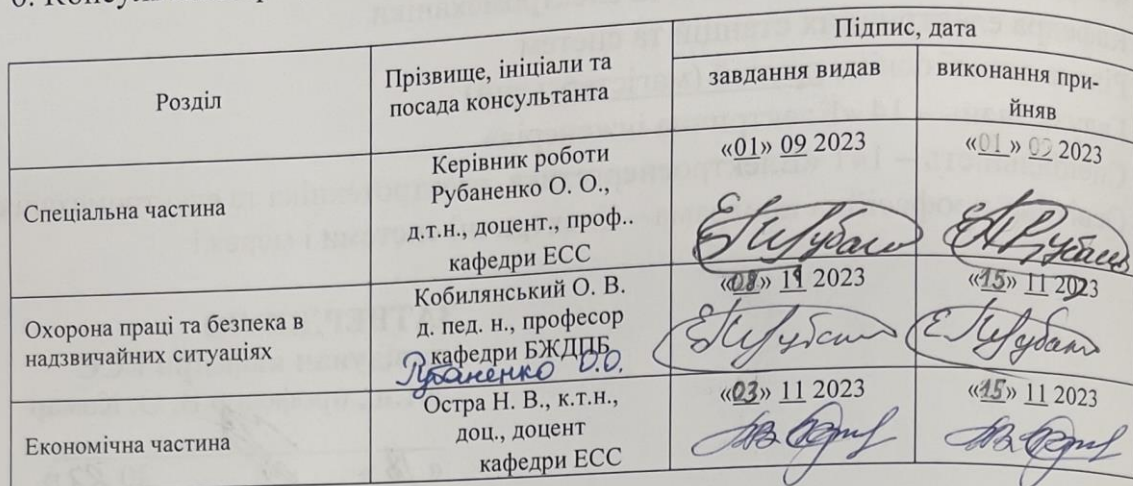 6. Консуль
Розділ
Прізвище, ініціали та
посада консультанта
Підпис, дата
завдання видав
виконання при-
йняв
Спеціальна частина
Керівник роботи
Рубаненко О. О.,
д.т.н., доцент., проф..
кафедри ЕСС
«01» 09 2023
«01 » 09 2023
Охорона праці та безпека в
надзвичайних ситуаціях
Кобилянський О. В.
д. пед. н., професор
кафедри БЖДПБ
Рубаненко О.О.
«08» 11 2023
«15» 11 2023
Економічна частина
Остра Н. В., к.т.н.,
доц., доцент
кафедри ЕСС
«03» 11 2023
«15» 11 2023